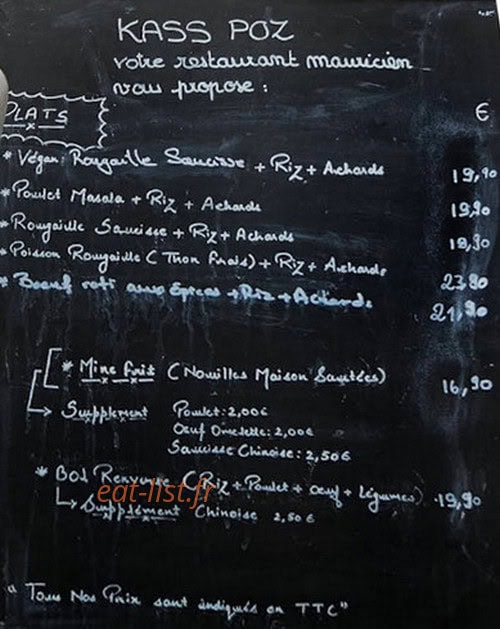 KASS POZ
votre restaurant mauricien
vous propose :
PLATS
€
* Végan: Rougaille Saucisse + Riz + Achards 19,90
* Poulet Masala + Riz + Achards 19,90
* Rougaille Saucisse + Riz + Achards 19,90
* Poisson Rougaille (Thon frais) + Riz + Achards 23,90
* Boeuf roti aux épices + Riz + Achards 21,90
* Mine Frit (Nouilles Maison Sautées) 16,90
Supplement Poulet: 2,00€
Œuf Omelette: 2,00€
Saucisse Chinoise: 2,50€
* Bol Renversé (Riz + Poulet + œuf + légumes) 19,90
eat-list.fr
Supplément Chinoise 2,50€
"Tous Nos Prix sont indiqués en TTC"